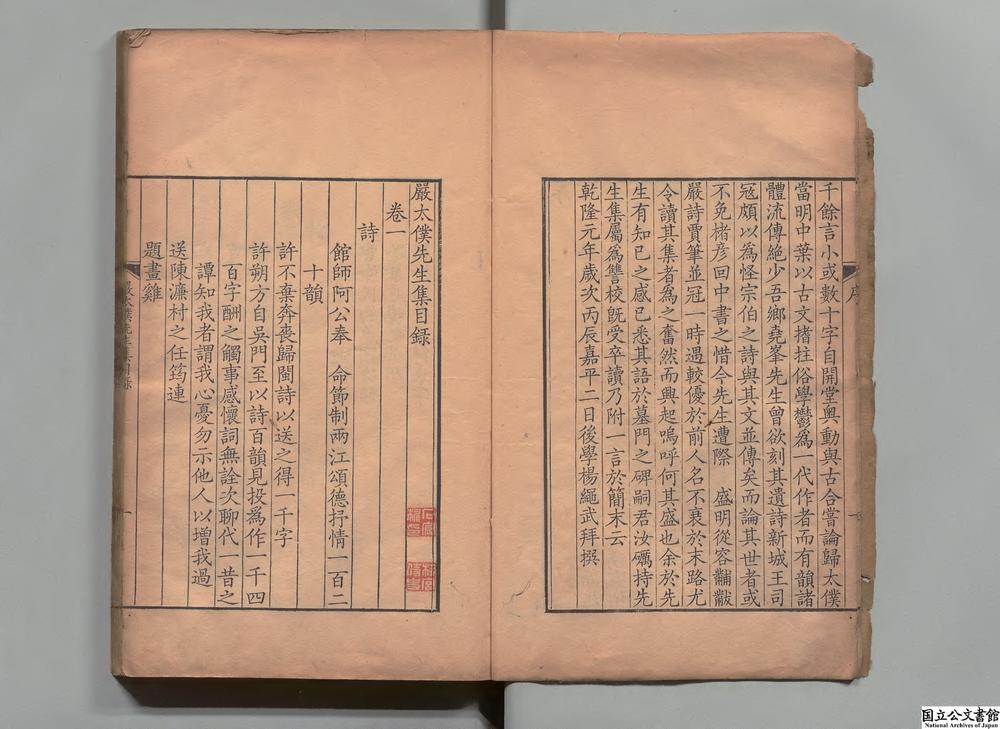 千餘言小或數十字自開堂奧動與古合嘗論歸太僕
當明中葉以古文搘拄俗學鬱為一代作者而有韻諸
體流傳絕少吾鄉堯峯先生曾欲刻其遺詩新城王司
寇頗以為怪宗伯之詩與其文並傳矣而論其世者或
不免楮彥回中書之惜今先生遭際　盛明從容黼黻
嚴詩賈筆並冠一時遇較優於前人名不衰於末路尤
令讀其集者為之奮然而興起嗚呼何其盛也余於先
生有知已之感已悉其語於墓門之碑嗣君汝礪持先
生集屬為讐校既受卒讀乃附一言於簡末云
乾隆元年歲次丙辰嘉平二日後學楊繩武拜撰
序
嚴太僕先生集目錄
卷一
詩
館師阿公奉　命節制兩江頌德抒情一百二
十韻
許不棄奔喪歸閩詩以送之得一千字
許朔方自吳門至以詩百韻見投為作一千四
百字酬之觸事感懷詞無詮次聊代一昔之
譚知我者謂我心憂勿示他人以增我過
送陳濂村之任筠連
題畫雞
嚴太僕先生集目錄
一
国立公文書館
National Archives of Japan